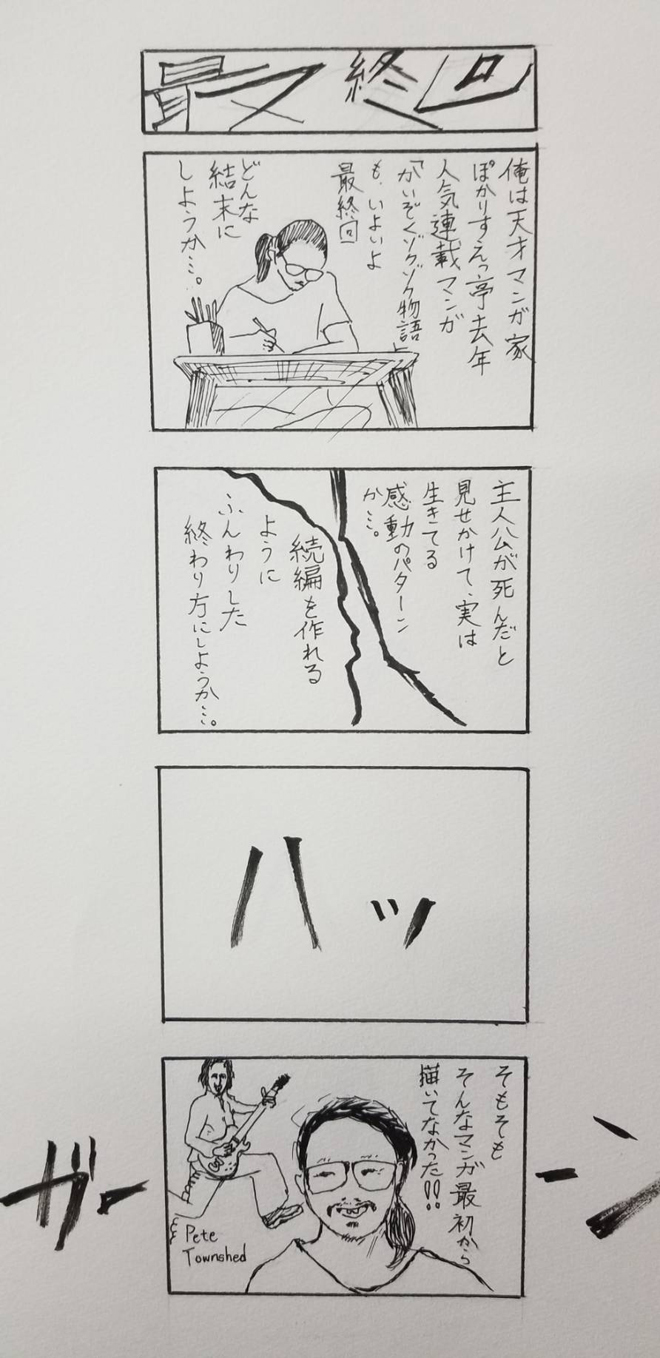 最終回
俺は天才マンガ家
ぽかりすえっ亭去年
人気連載マンガ
「かいぞくゾクゾク物語」
も、いよいよ
最終回
どんな
結末に
しようか…。
主人公が死んだと
見せかけて、実は
生きてる
感動のパターン
か…。
続編を作れる
ように
ふんわりした
終わり方にしようか…。
ハッ
そもそも
そんなマンガ最初から
描いてなかった!!
Pete
Townshed
ガーーン